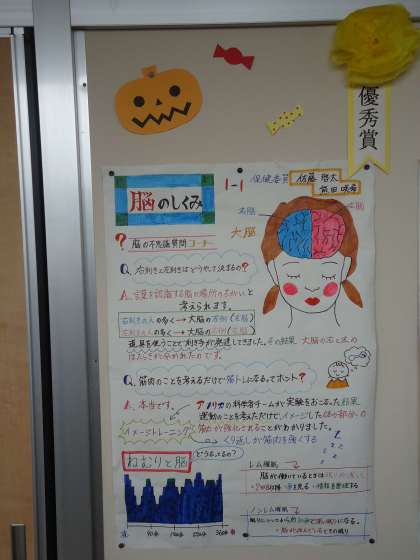 優秀賞
脳のしくみ
1-1 保健委員 佐藤 啓太
前田 咲希
右脳 左脳
大脳
? 脳の不思議質問コーナー
Q. 右利きと左利きはどうやって決まるの?
A. 言葉を認識する脳の場所のちがいと
考えられます。
右利きの人の多く→大脳の左側(左脳)
左利きの人の多く→大脳の右側(右脳)
道具を使うことで利き手が発達してきました。その結果 大脳の右と左の
はたらきが分かれたのです。
Q. 筋肉のことを考えるだけで筋トレになるってホント?
A. 本当です。
アメリカの科学者チームが実験をおこなった結果
運動のことを考えただけで、イメージした体の部分の
筋力が強化されることがわかりました。
イメージトレーニング
くり返しが筋肉を強くする
ねむりと脳
どうなってるの?
レム睡眠
脳が働いているときは
夢を見る
情報を整理する
ノンレム睡眠
脳が休んでいるときの眠り